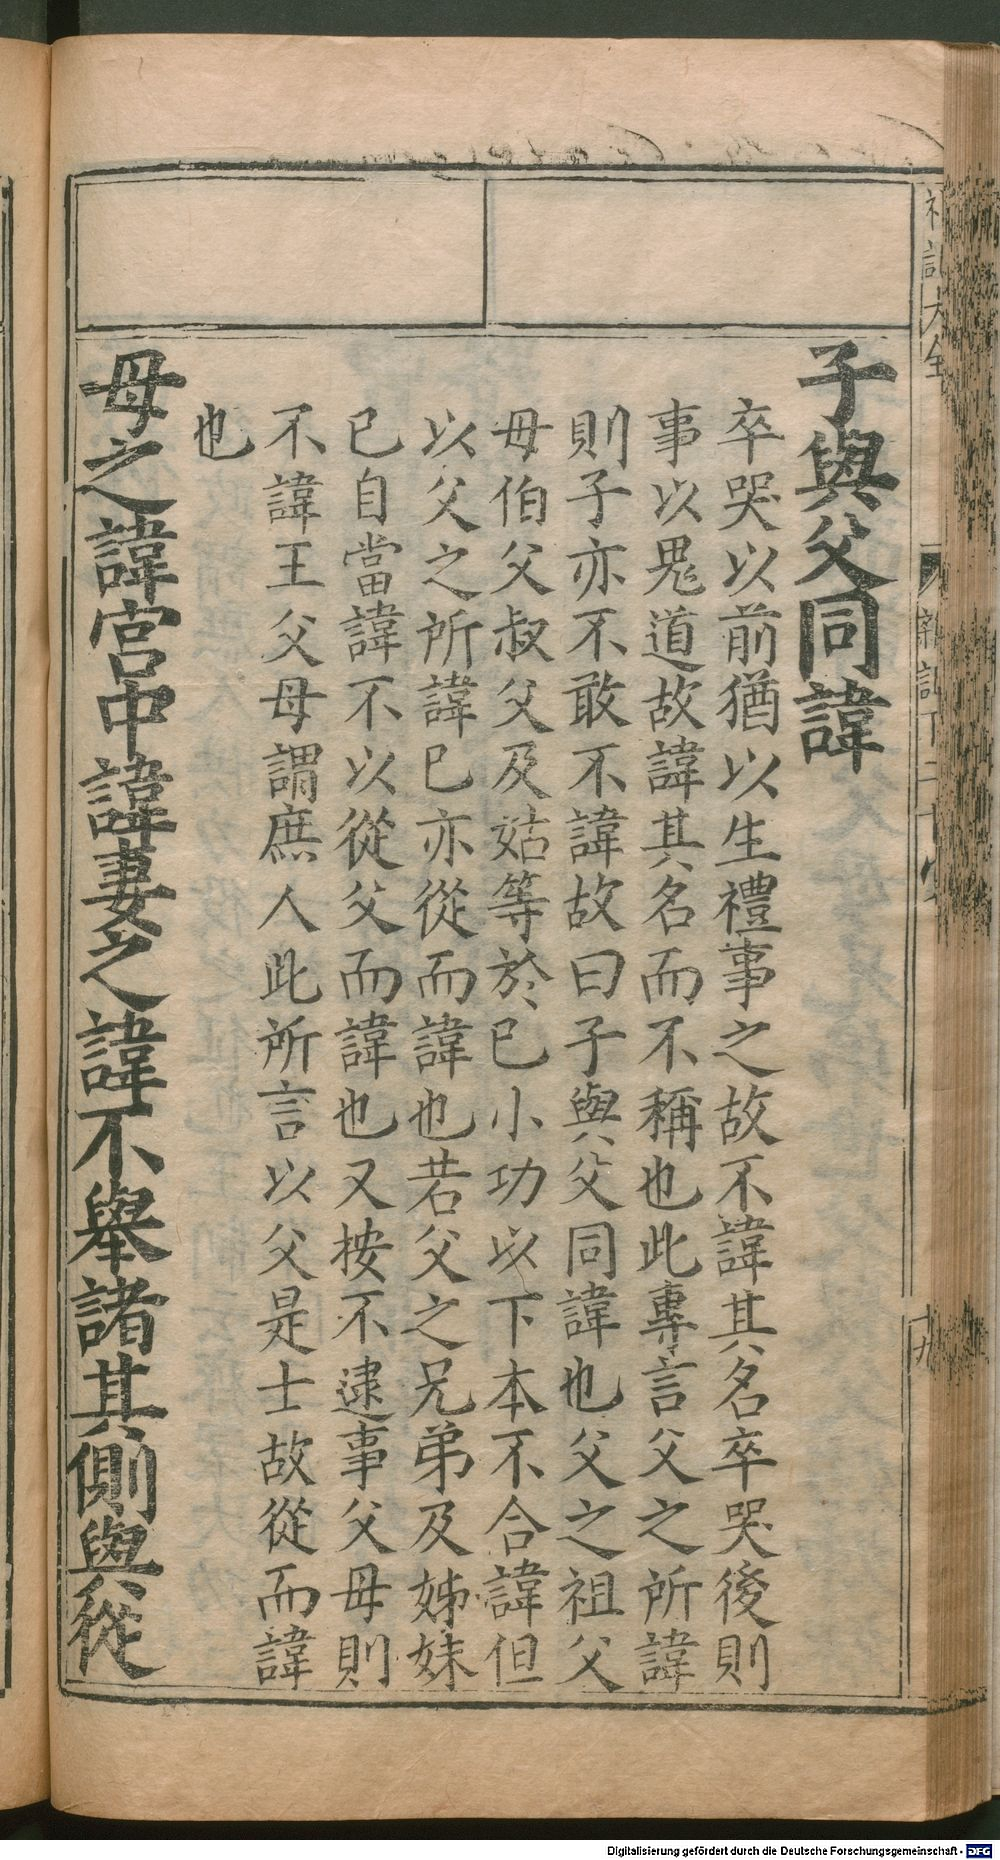 子與父同諱
卒哭以前猶以生禮事之故不諱其名卒哭後則
事以鬼道故諱其名而不稱也此專言父之所諱
則子亦不敢不諱故曰子與父同諱也父之祖父
母伯父叔父及姑等於已小功以下本不合諱但
以父之所諱已亦從而諱也若父之兄弟及姊妹
已自當諱不以從父而諱也又按不逮事父母則
不諱王父母謂庶人此所言以父是士故從而諱
也
母之諱宮中諱妻之諱不舉諸其側與從
Digitalisierung gefördert durch die Deutsche Forschungsgemeinschaft - DFG